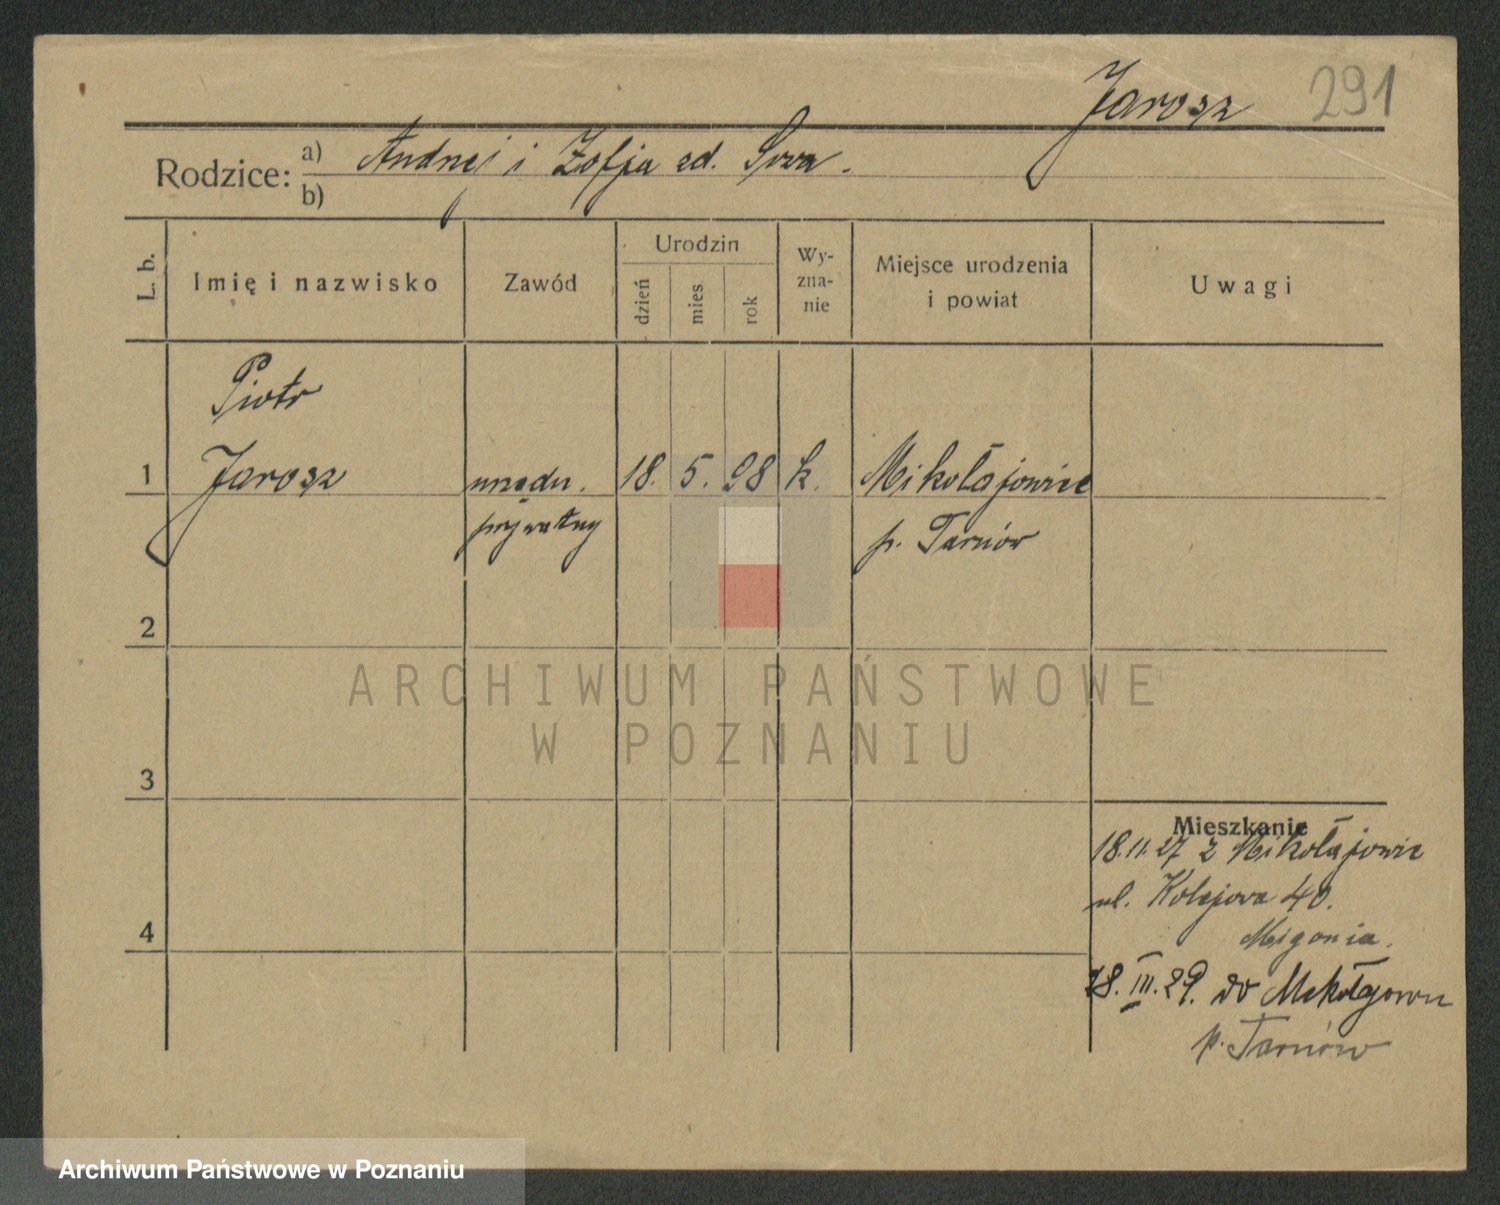 Jarosz 291
Rodzice: a) Andrzej i Zofja zd. Sowa.
b)
L. b. Imię i nazwisko Zawód Urodzin dzień mies rok Wy-zna-nie Miejsce urodzenia i powiat Uwagi
Piotr
1 Jarosz urzędn. 18. 5. 98 k. Mikołajowice
prywatny p. Tarnów
2
ARCHIWUM PAŃSTWOWE
W POZNANIU
3
Mieszkanie
18.11.27 z Mikołajowic
ul. Kolejowa 40.
4
28.III.29. do Mikołajowic
p. Tarnów
Archiwum Państwowe w Poznaniu